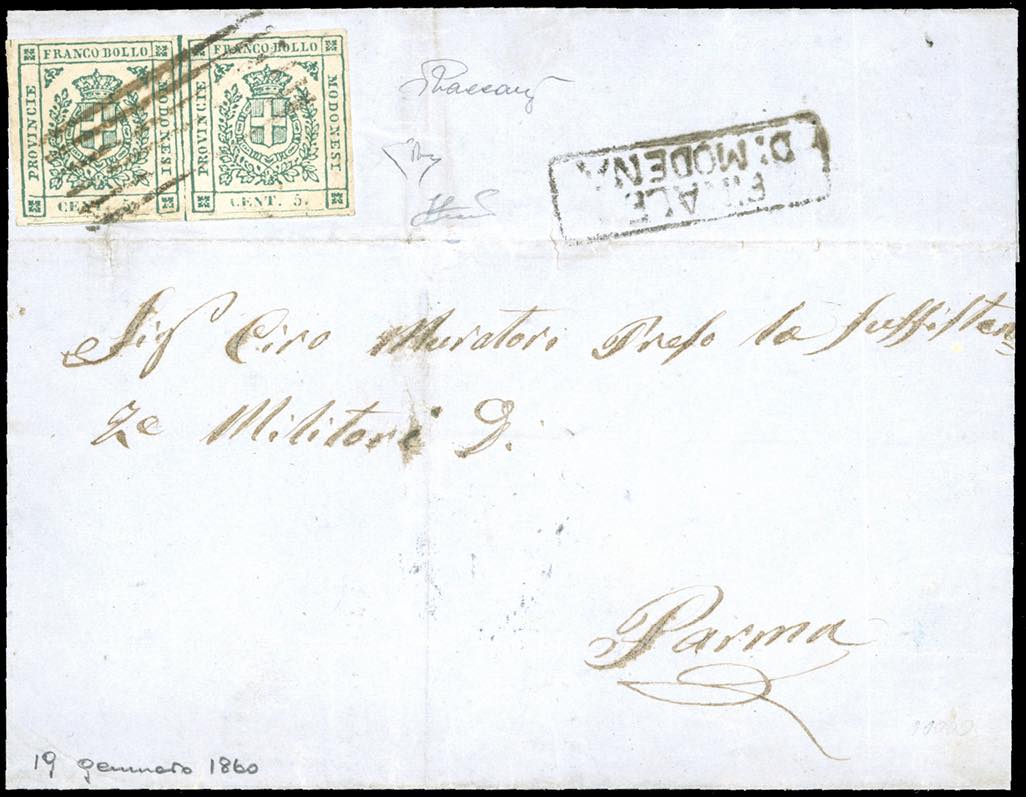 FRANCO BOLLO
PROVINCIE
MODONESI
CEN
FRANCO BOLLO
PROVINCIE
MODONESI
CENT. 5.
FINALE
D: MODENA
Sig Ciro Muratori Preso la Sussisten
ze Militari D.
Parma
19 gennaio 1860